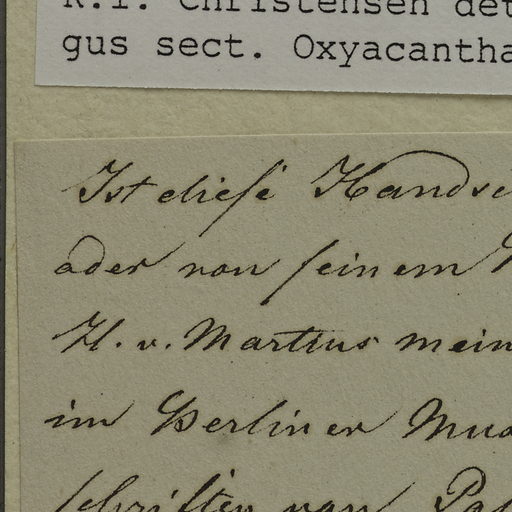 K.I. Christensen det
gus sect. Oxyacantha
Ist diese Handsc
oder von seinem
H. v. Martius mein
im Berliner Mus
schriften von Pal